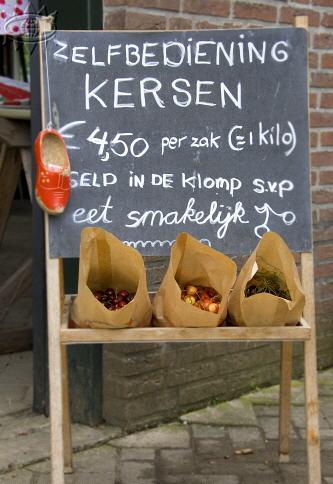 ZELFBEDIENING
KERSEN
€ 4,50 per zak (= 1 kilo)
GELD IN DE Klomp s.v.p
eet smakelijk